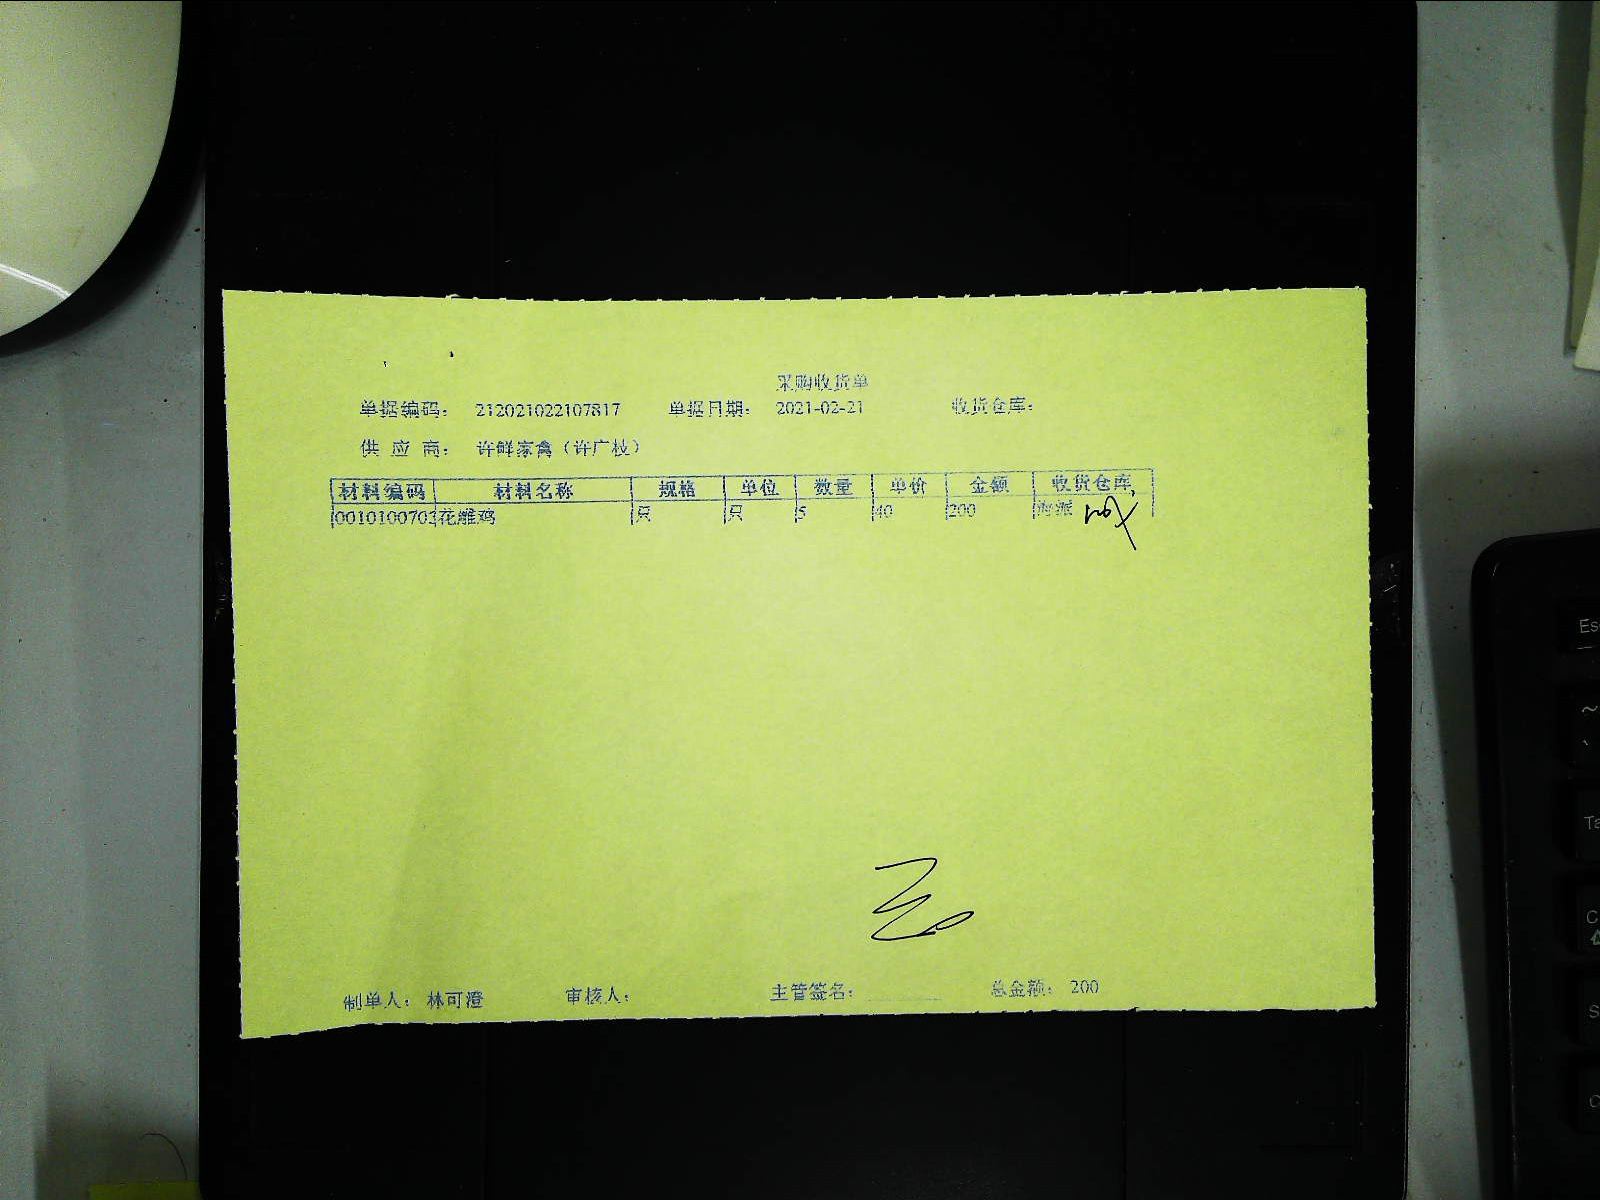 采购收货单
单据编码： 212021022107817 单据日期： 2021-02-21 收货仓库：
供 应 商： 许鲜家禽（许广枝）
材料编码 材料名称 规格 单位 数量 单价 金额 收货仓库
0010100703 花雕鸡 只 只 5 40 200 海派
制单人： 林可澄 审核人： 主管签名： 总金额： 200
Es
Ta